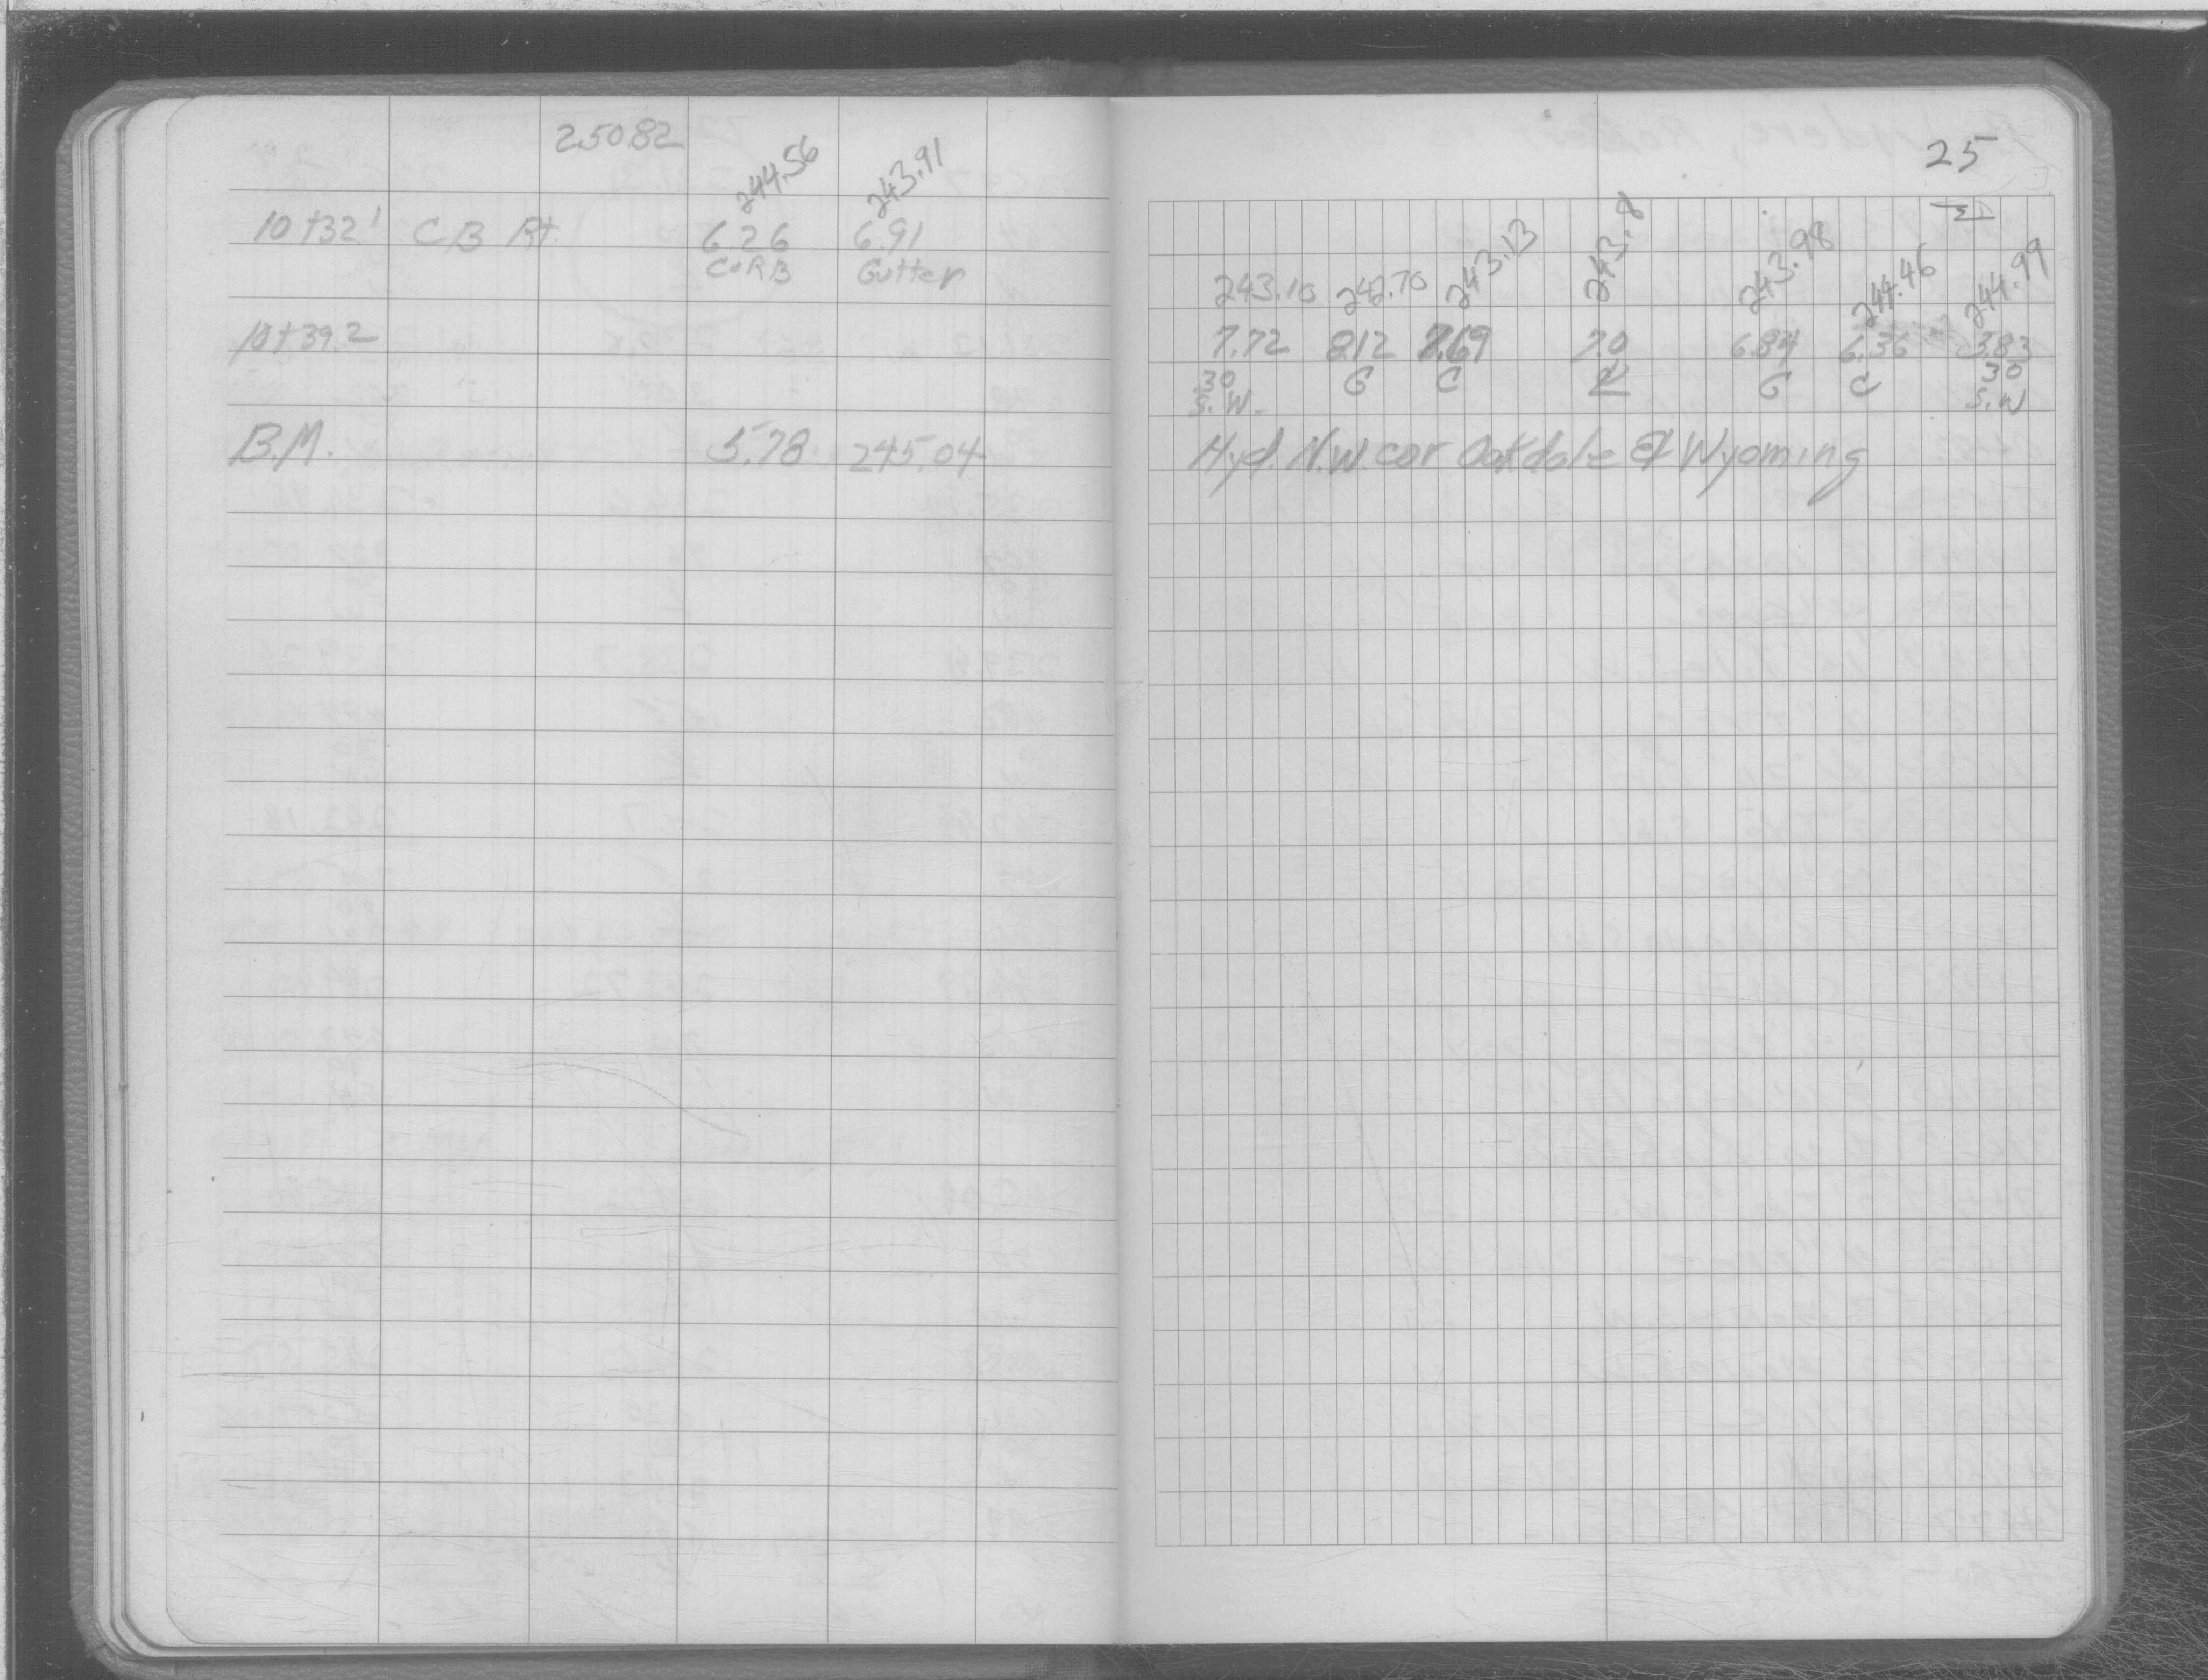 250.82
244.56 243.91
10+32' C B Rt. 6.26 6.91
CURB Gutter
10+39.2
B.M. 5.78 245.04
25
243.10 242.70 243.13 243.8 243.98 244.46 244.99
7.72 8.12 7.69 7.0 6.84 6.36 5.83
30 G C ℄ G C 30
S.W. S.W
Hyd. N.W. cor Oakdale & Wyoming